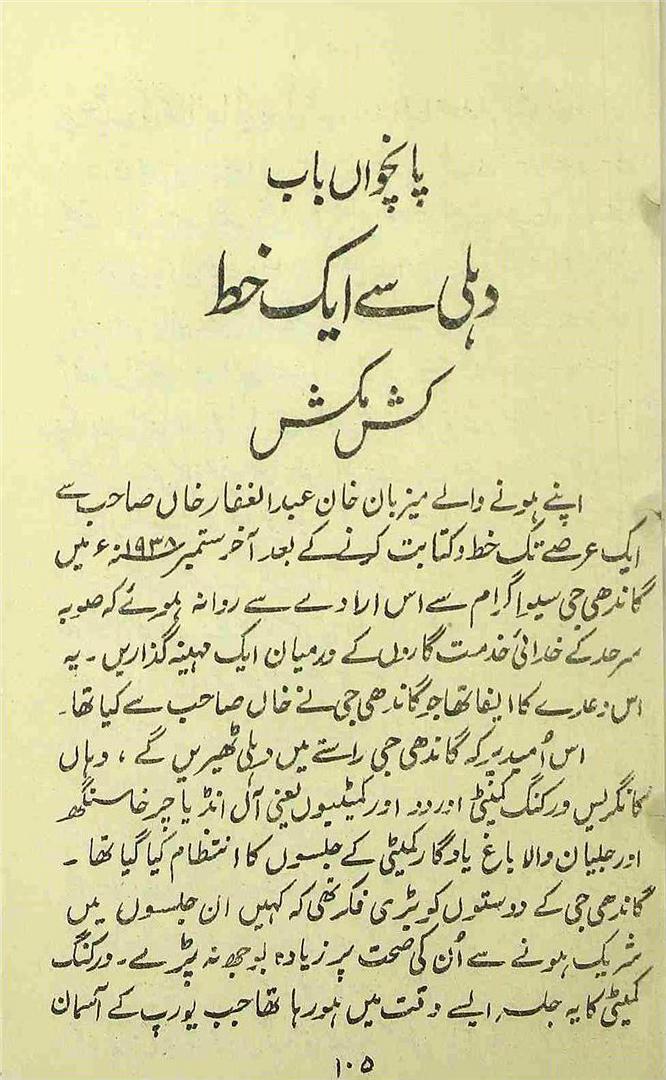 پانچواں باب
دہلی سے ایک خط
کش مکش
اپنے ہونے والے میزبان خان عبدالغفار خاں صاحب سے
ایک عرصے تک خط و کتابت کرنے کے بعد آخر ستمبر ۱۹۳۸ء میں
گاندھی جی سیوا گرام سے اس ارادے سے روانہ ہوئے کہ صوبہ
سرحد کے خدائی خدمت گاروں کے درمیان ایک مہینہ گذاریں ۔ یہ
اس وعدے کا ایفا تھا جو گاندھی جی نے خاں صاحب سے کیا تھا ۔
اس اُمید پر کہ گاندھی جی راستے میں دہلی ٹھیریں گے ، وہاں
کانگریس ورکنگ کمیٹی اور دو اور کمیٹیوں یعنی آل انڈیا چرخا سنگھ
اور جلیان والا باغ یادگار کمیٹی کے جلسوں کا انتظام کیا گیا تھا ۔
گاندھی جی کے دوستوں کو بڑی فکر تھی کہ کہیں ان جلسوں میں
شریک ہونے سے اُن کی صحت پر زیادہ بوجھ نہ پڑے ۔ ورکنگ
کمیٹی کا یہ جلسہ ایسے وقت میں ہو رہا تھا جب یورپ کے آسمان
۱۰۵